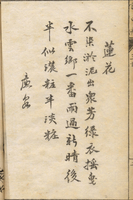 蓮花
不染淤泥出衆芳綠衣搖曳
水雲鄉一番雨過新晴後
半似濃粧半淡粧